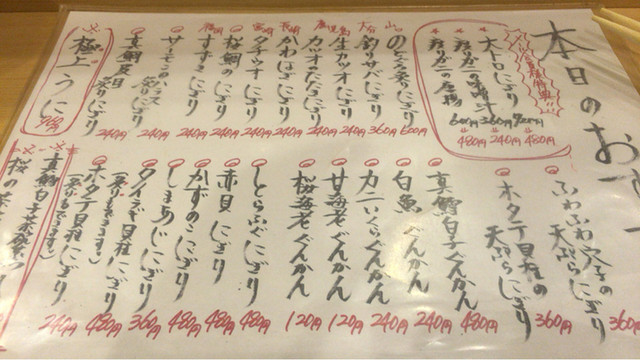 本日のおす
いちば特典!!
大トロにぎり 720円→480円
彩りガニの味噌汁 360円→240円
彩りガニの唐揚 600円→480円
山口 のどぐろ炙りにぎり 600円
大分 釣りサバにぎり 360円
鹿児島 生カツオにぎり 240円
カツオたたきにぎり 240円
長崎 かわはぎにぎり 240円
宮崎 タチウオにぎり 240円
桜鯛のにぎり 240円
福岡 すずきにぎり 240円
サーモンのハラス炙りにぎり 240円
真鯛昆布〆炙りにぎり 240円
極上うに 960円
ふわふわ穴子の天ぷらにぎり 360円
ホタテ貝柱の天ぷらにぎり 360円
真鱈白子ぐんかん 480円
白魚ぐんかん 240円
カニいくらぐんかん 240円
甘海老ぐんかん 120円
桜海老ぐんかん 120円
しとらふぐにぎり 480円
赤貝にぎり 480円
かずのこにぎり 480円
しまあじにぎり 480円
タイラギ貝柱にぎり (炙りもできます) 360円
ホタテ貝柱にぎり (炙りもできます) 480円
真鱈白子茶碗むし 240円
桜の茶
360円